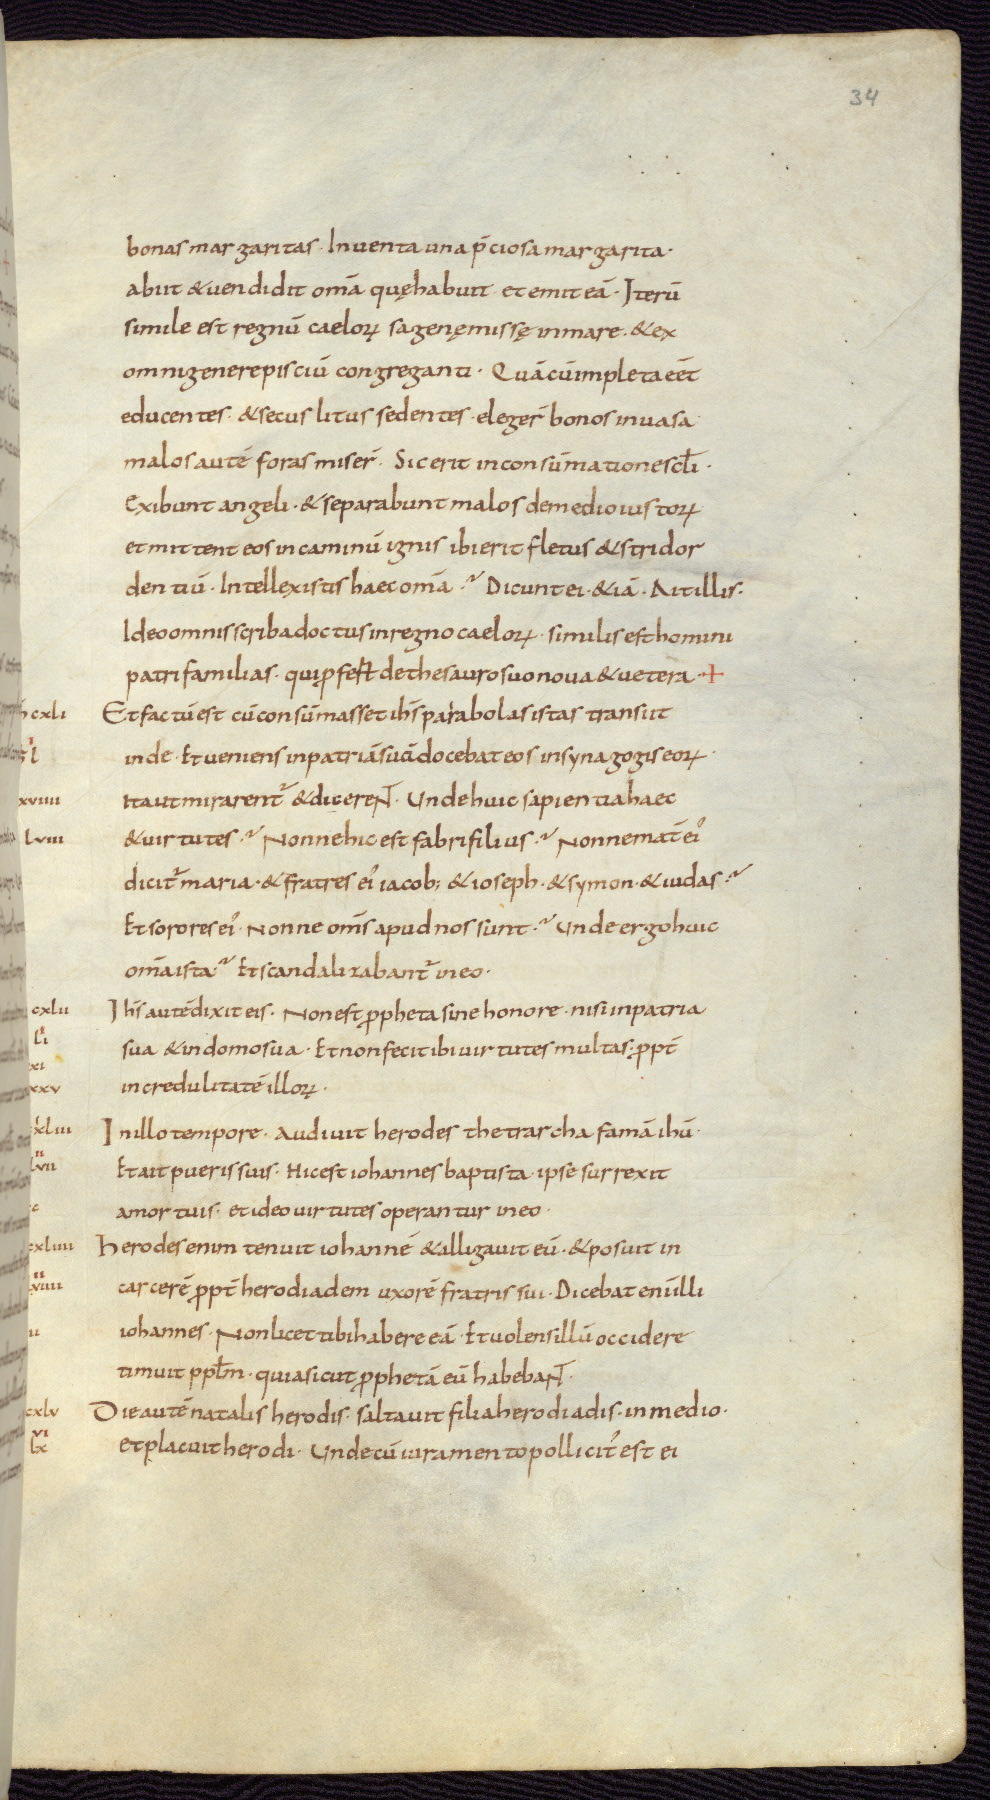 34
bonas margaritas · Inventa una p̄ciosa margarita ·
abiit & vendidit om̄a quę habuit · et emit eā · Iterū
simile est regnū caeloꝝ sagenę missę in mare · & ex
omni genere pisciū congreganti · Quā cū impleta eēt
educentes · & secus litus sedentes · eleger̄ bonos in vasa
malos autē foras miser̄ · Sic erit in consūmatione scl̄i ·
Exibunt angeli · & separabunt malos de medio iustoꝝ
et mittent eos in caminū ignis ibi erit fletus & stridor
dentiū · Intellexistis haec om̄a ·~ Dicunt ei · &iā · Ait illis ·
Ideo omnis scriba doctus in regno caeloꝝ · similis est homini
patri familias · qui ꝓfert de thesauro suo nova & vetera · +
cxli Et factū est cū consūmasset ih̄s parabolas istas transiit
l inde · Et veniens in patriā suā docebat eos in synagogis eoꝝ ·
xviiii Ita ut mirarent᷑ & dicereN̄T · Unde huic sapientia haec
lviii & virtutes ·~ Nonne hic est fabri filius ·~ Nonne mat̄ ei᷒
dicit᷑ maria · & fratres ei᷒ iacob; & ioseph · & symon · & iudas ·~
Et sorores ei᷒ · Nonne om̄s apud nos sunt ·~ Unde ergo huic
om̄a ista ~ Et scandalizabant᷑ in eo ·
cxlii Ih̄s autē dixit eis · Non est ꝓpheta sine honore · nisi in patria
li sua & in domo sua · Et non fecit ibi virtutes multas; ꝓpt̄
xi
xxv incredulitatē illoꝝ ·
xliii In illo tempore · Audivit herodes thetrarcha famā ih̄u ·
lvii Et ait pueris suis · Hic est iohannes baptista · ipse surrexit
a mortuis · et ideo virtutes operantur in eo ·
cxliiii Herodes enim tenuit iohannē & alligavit eū · & posuit in
viiii carcerē ꝓpt̄ herodiadem uxorē fratris sui · Dicebat eni illi
ii iohannes · Non licet tibi habere eā · Et volens illū occidere
timuit ppl̄m · quia sicut ꝓphetā eū habebaN̄T ·
cxlv Die autē natalis herodis · saltavit filia herodiadis · in medio ·
vi
lx et placuit herodi · Unde cū iuramento pollicit᷒ est ei